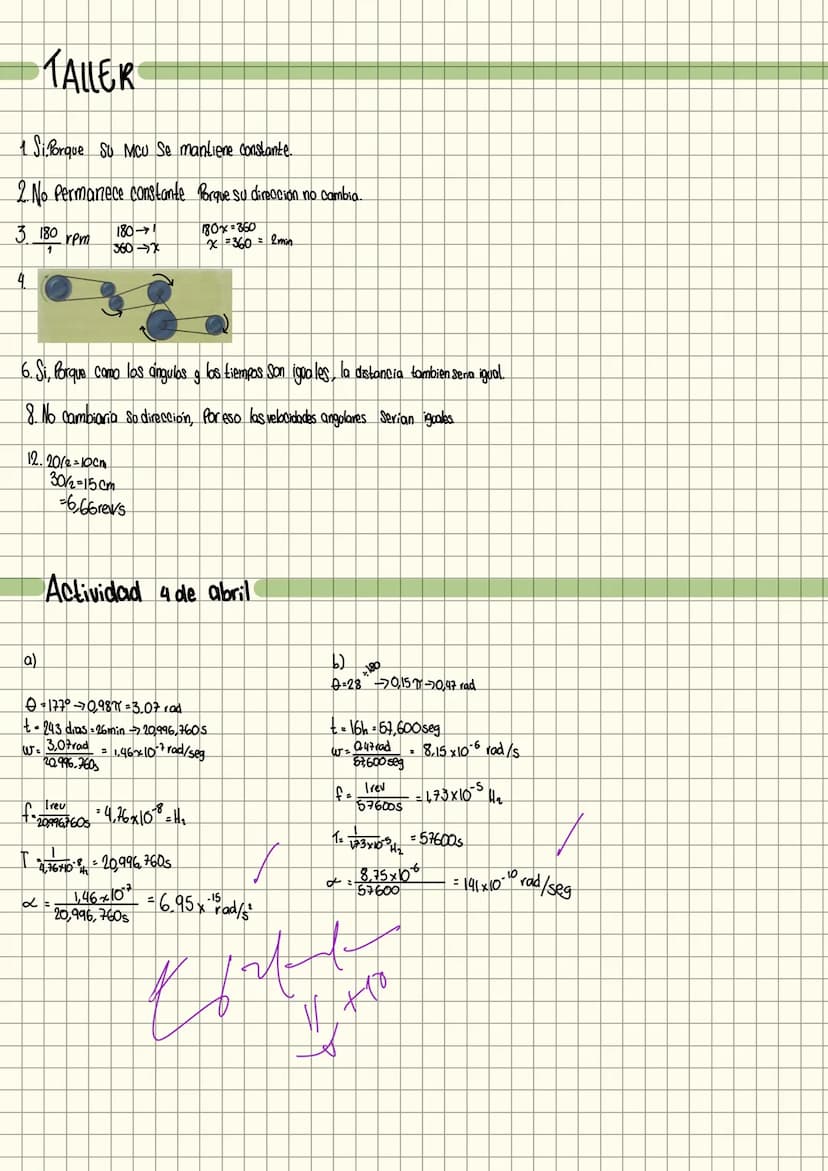 TALLER
1. Si, Porque su MCU se mantiene constante.
2. No Permanece constante Porque su dirección no cambia.
3. 180/1 rpm 180→1 180x=360
360→x x=360 = 2min
4.
6. Si, Porque como los ángulos y los tiempos son iguales, la distancia tambien seria igual.
8. No cambiaria su dirección, Por eso las velocidades angulares serian iguales
12. 20/2=10cm
30/2=15cm
=6,66rev/s
Actividad 4 de abril
a)
θ=177° →0,98π=3.07 rad
t=243 dias=26min → 20,996,760s
w= 3,07rad/20.996.760s = 1,46x10⁻⁷ rad/seg
f= 1rev/20,996,760s = 4,76x10⁻⁸ = Hz
T= 1/4,76x10⁻⁸ Hz = 20,996,760s
α = 1,46x10⁻⁷/20,996,760s = 6.95x⁻¹⁵ rad/s²
b)
θ=28 ÷180 →0,15π→0,47 rad
t=16h=57,600seg
w= 0.47rad/57600seg = 8,15x10⁻⁶ rad/s
f= 1rev/57600s = 1,73x10⁻⁵ Hz
T= 1/1,73x10⁻⁵ Hz = 57600s
α = 8,75x10⁻⁶/57600 = 141x10⁻¹⁰ rad/seg
x10